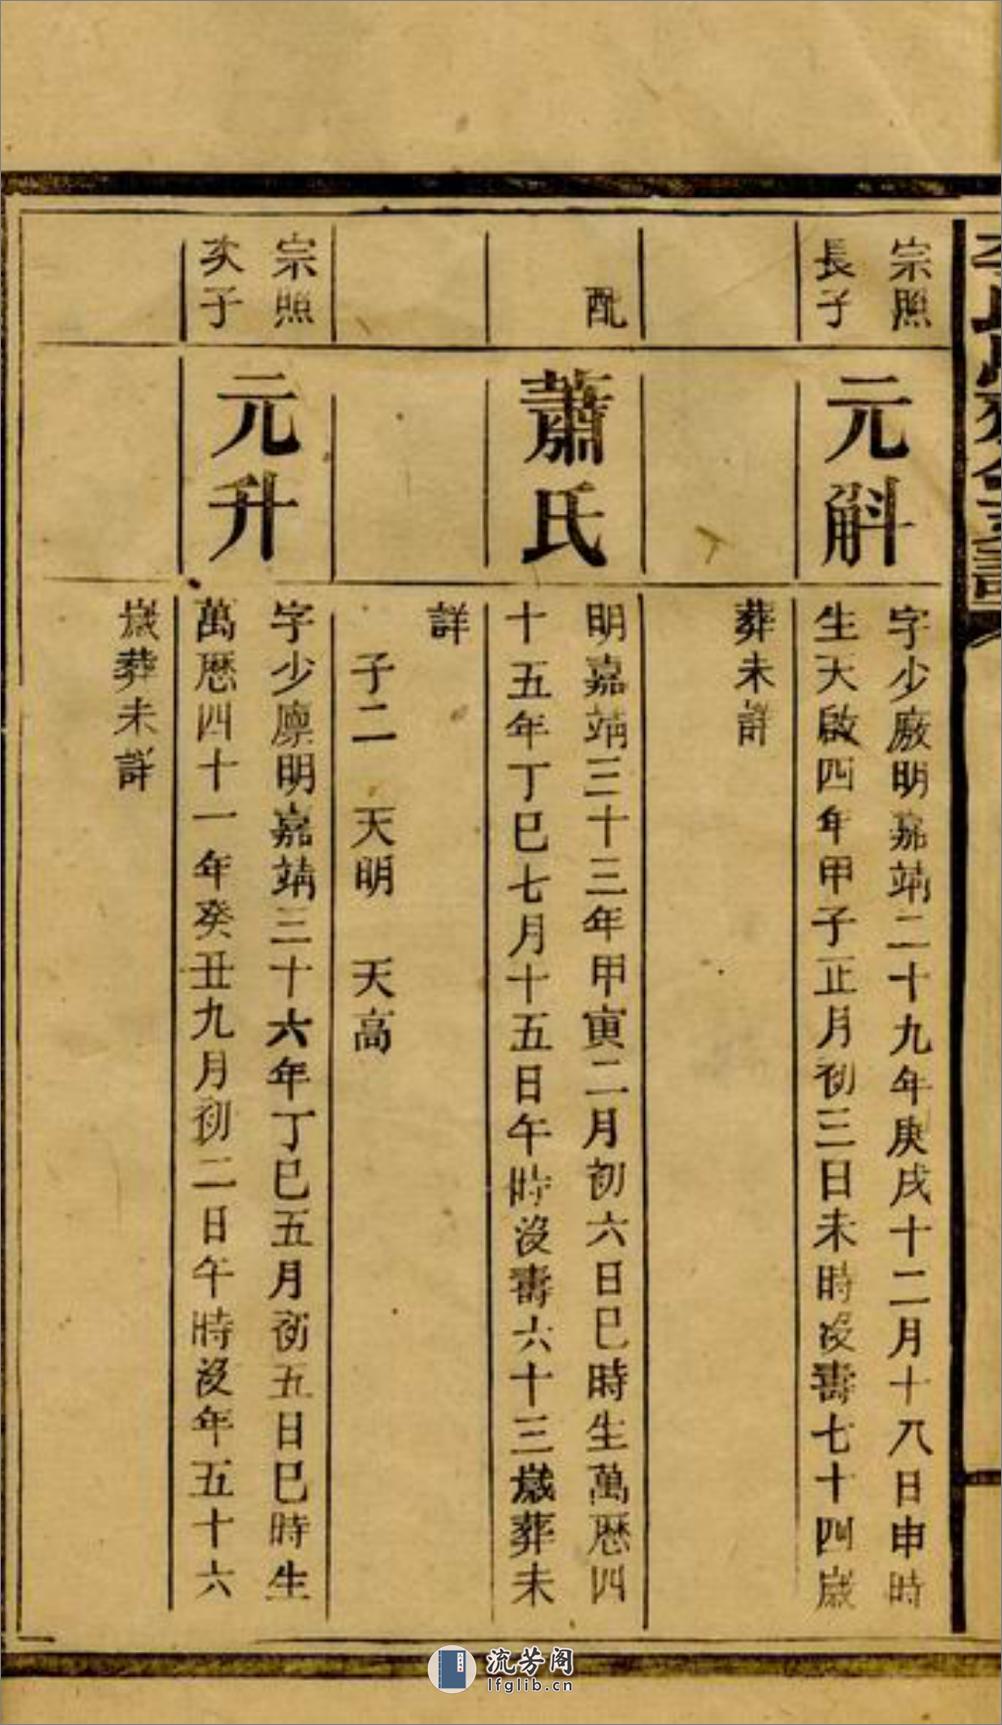 宗照
長子
元斛
字少廒明嘉靖二十九年庚戌十二月十八日申時
生天啟四年甲子正月初三日未時没壽七十四歲
葬未詳
配
蕭氏
明嘉靖三十三年甲寅二月初六日巳時生萬歷四
十五年丁巳七月十五日午時没壽六十三歲葬未
詳
子二 天明 天高
宗照
次子
元升
字少廩明嘉靖三十六年丁巳五月初五日巳時生
萬歷四十一年癸丑九月初二日午時没年五十六
歲葬未詳
流芳阁
lfglib.cn